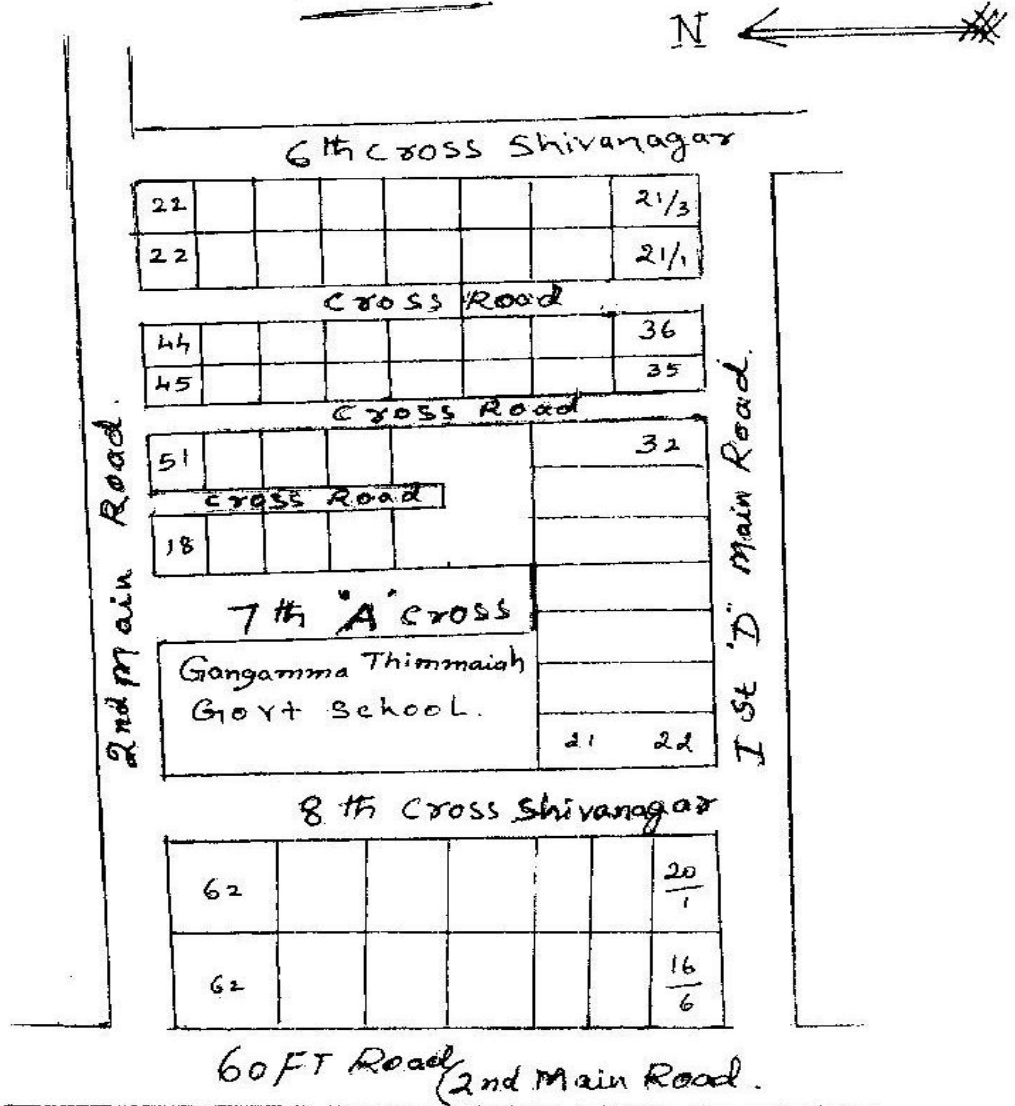 N
6th cross Shivanagar
22 21/3
22 21/1
Cross Road
44 36
45 35
Cross Road
51 32
Cross Road
18
7th "A" cross
Gangamma Thimmaiah
Govt School.
21 22
8th Cross Shivanagar
62 20/1
62 16/6
60 FT Road (2nd Main Road.
2nd Main Road.
I St "D" Main Road.